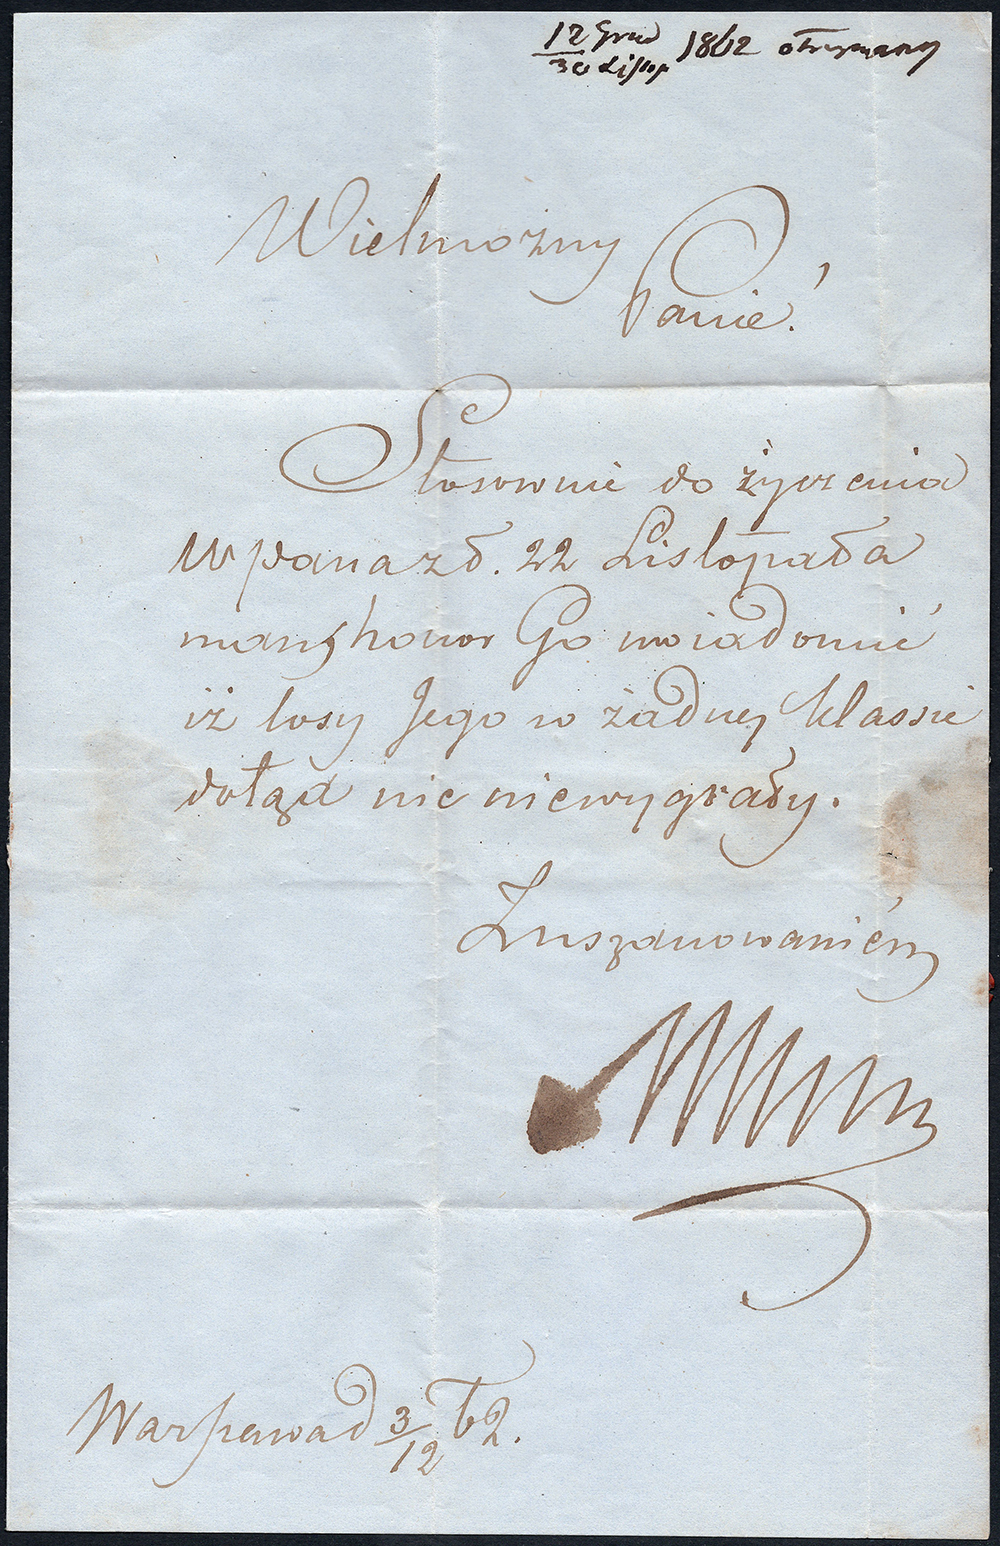 12 Grud 1862 otrzymany
30 Listop
Wielmożny
Panie!
Stosownie do życzenia
WPana z d. 22 Listopada
mam honor Go uwiadomić
iż losy Jego w żadney klassie
dotąd nic niewygrały.
Z uszanowaniém
Warszawa d 3/12 62.